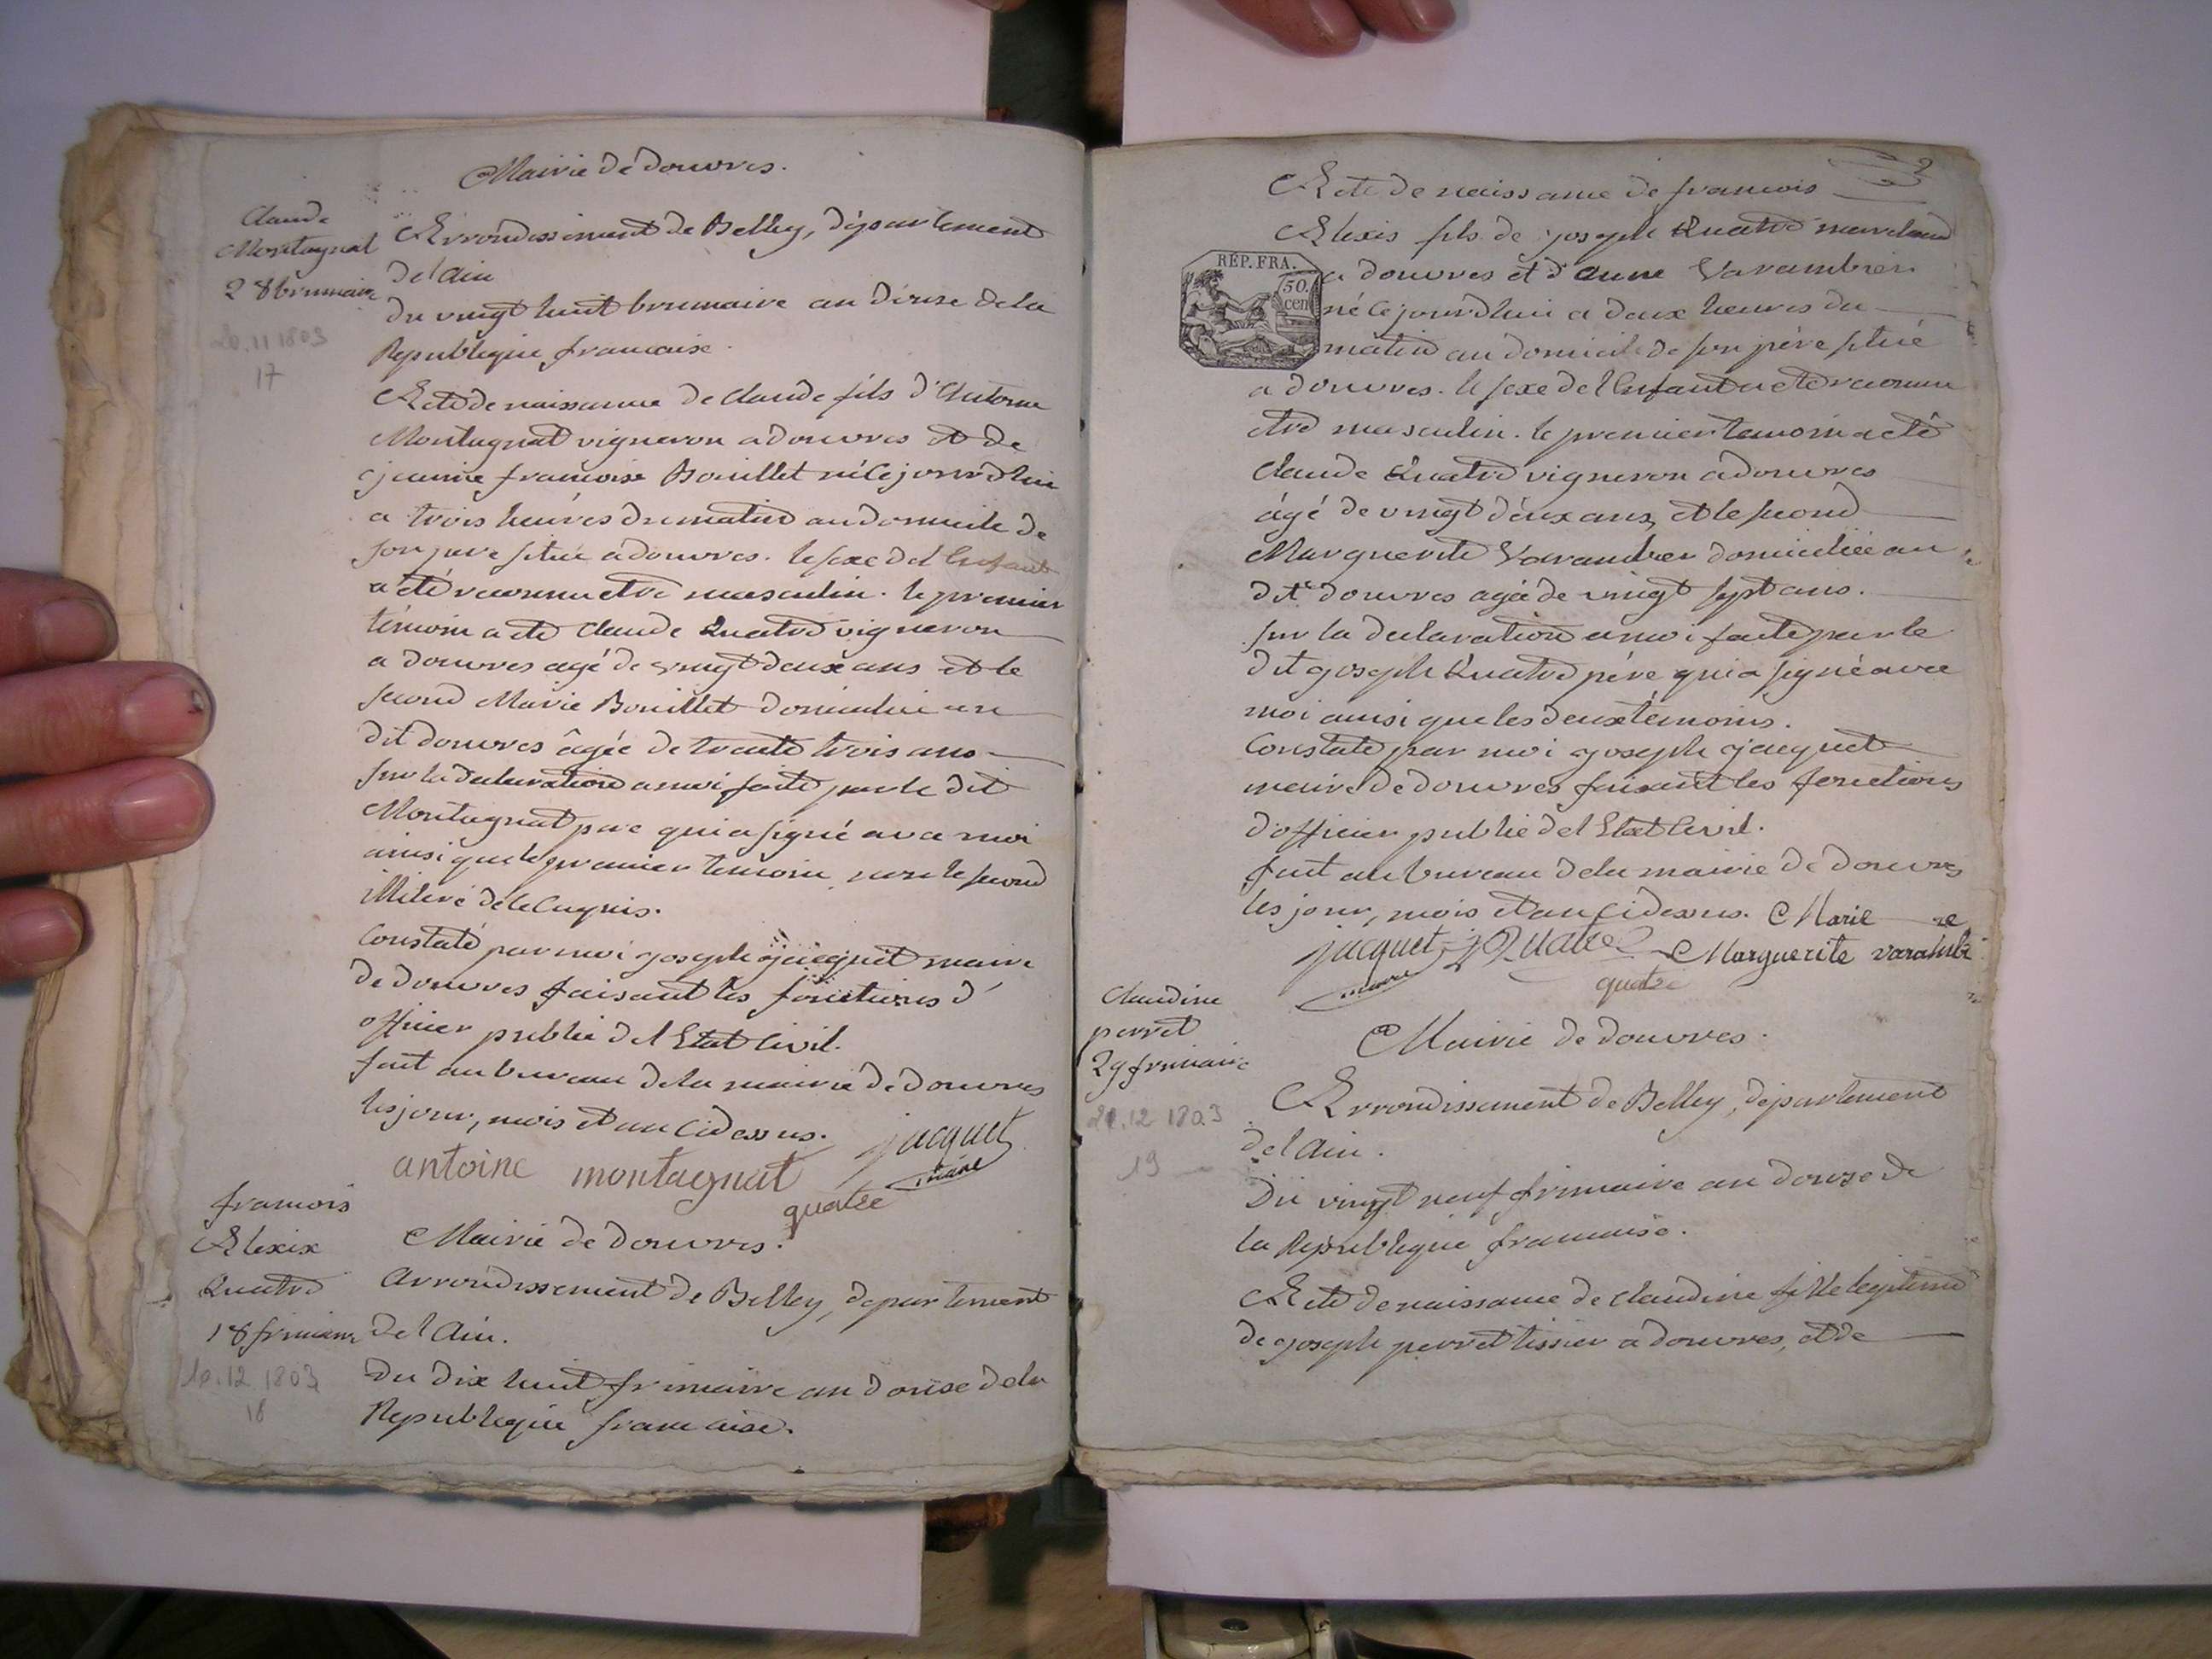 Mairie de douvres.
Claude
Montagnat
28 brumaire
20.11 1803
17
Arrondissement de Belley, département
de l'ain
du vingt huit brumaire an douse de la
Republique francaise.
Acte de naissance de Claude fils d'Antoine
Montagnat vigneron a douvres et de
jeanne francoise Bouillet né cejourdhui
a trois heures du matin au domicile de
son pere situé a douvres. le sexe de l'Enfant
a été reconnu etre masculin. le premier
témoin a été Claude Quatre vigneron
a douvres agé de vingt deux ans et le
second Marie Bouillet domiciliée au
dit douvres âgée de trente trois ans
sur la declaration a moi faite par le dit
Montagnat pere qui a signé avec moi
ainsi que le premier temoin, non le second
illiteré de ce enquis.
Constaté par moi joseph jacquet maire
de douvres faisant les fonctions d'
officier public de l'Etat Civil.
fait au bureau de la mairie de douvres
les jour, mois et an Cidessus.
jacquet
maire
antoine montagnat
quatre
francois
Alexix
Quatre
18 frimaire
10.12 1803
18
Mairie de douvres.
arrondissement de Belley, departement
de l'Ain.
du dix huit frimaire an douse de la
Republique francaise.
2
Acte de naissance de francois
Alexis fils de joseph Quatre marchand
RÉP. FRA.
50.
cen
a douvres et d'anne Varambier
né cejourdhui a deux heures du
matin au domicile de son père situé
a douvres. le sexe de l'Enfant a eté reconnu
etre masculin. le premier temoin a été
Claude Quatre vigneron a douvres
âgé de vingt deux ans, et le second
Marguerite Varambier domiciliée au
dit douvres agée de vingt sept ans.
sur la declaration a moi faite par le
dit joseph Quatre père qui a signé avec
moi ainsi que les deux témoins.
Constaté par moi joseph jacquet
maire de douvres faisant les fonctions
d'officier public de l'Etat Civil.
fait au bureau de la mairie de douvres
les jour, mois et an Cidessus. Marie
jacquet j Quatre Marguerite varambi
maire
quatre
Claudine
perret
29 frimaire
21.12 1803
19
Mairie de douvres.
Arrondissement de Belley, departement
de l'ain.
Du vingt neuf frimaire an douse de
la Republique francaise.
Acte de naissance de claudine fille legitime
de joseph perret tissier a douvres, et de